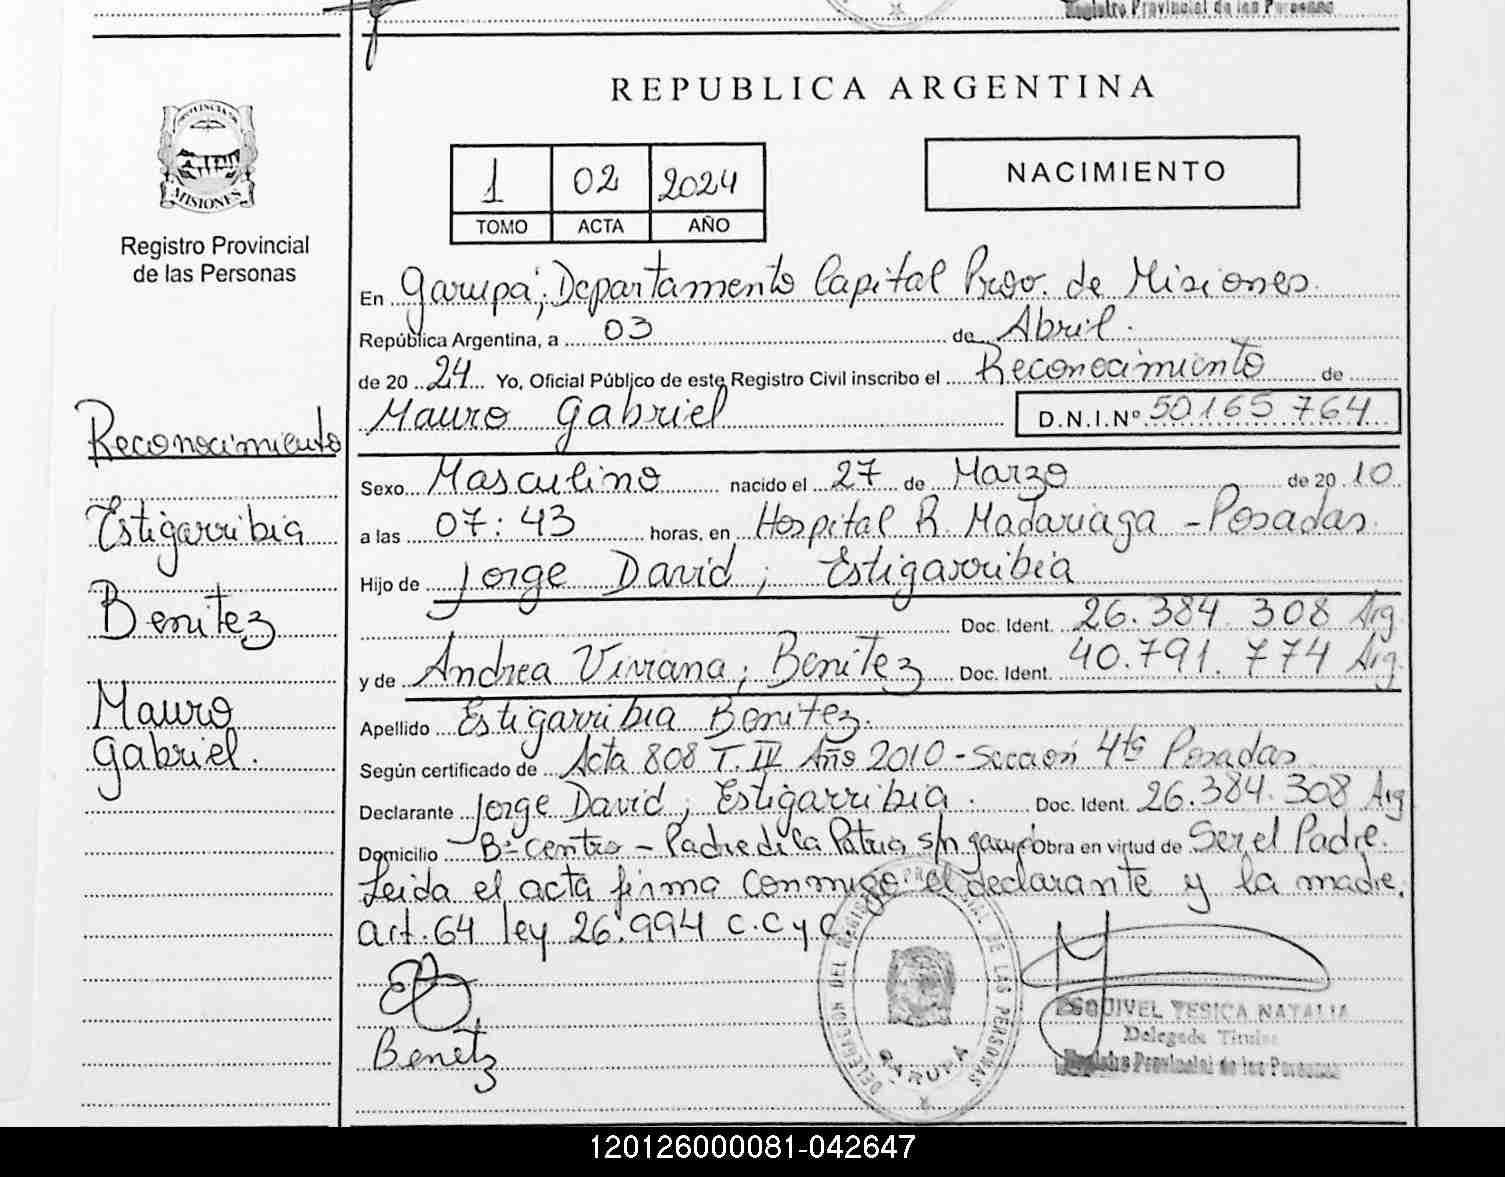 Registro Provincial de las Personas
REPUBLICA ARGENTINA
PROVINCIA DE
MISIONES
Registro Provincial
de las Personas
1 02 2024
TOMO ACTA AÑO
NACIMIENTO
En Garupá; Departamento Capital Prov. de Misiones
República Argentina, a 03 de Abril.
de 20 24 Yo, Oficial Público de este Registro Civil inscribo el Reconocimiento de
Mauro Gabriel D.N.I.Nº 50.165 764
Sexo Masculino nacido el 27 de Marzo de 20 10
a las 07:43 horas, en Hospital R. Madariaga - Posadas.
Hijo de Jorge David; Estigarribia
Doc. Ident. 26.384 308 Arg
y de Andrea Viviana; Benitez Doc. Ident. 40.791.774 Arg.
Apellido Estigarribia Benitez.
Según certificado de Acta 808 T. IV Año 2010 - Sección 4ta Posadas
Declarante Jorge David; Estigarribia. Doc. Ident. 26.384.308 Arg
Domicilio Bº Centro - Padre de la Patria s/n Garupá Obra en virtud de Ser el Padre.
Leida el acta firma conmigo el declarante y la madre.
art. 64 ley 26.994 C.C y C.
Reconocimiento
Estigarribia
Benitez
Mauro
Gabriel.
Benitez
DELEGACION DEL REGISTRO PROVINCIAL DE LAS PERSONAS
GARUPA
ESQUIVEL YESICA NATALIA
Delegada Titular
Registro Provincial de las Personas
120126000081-042647